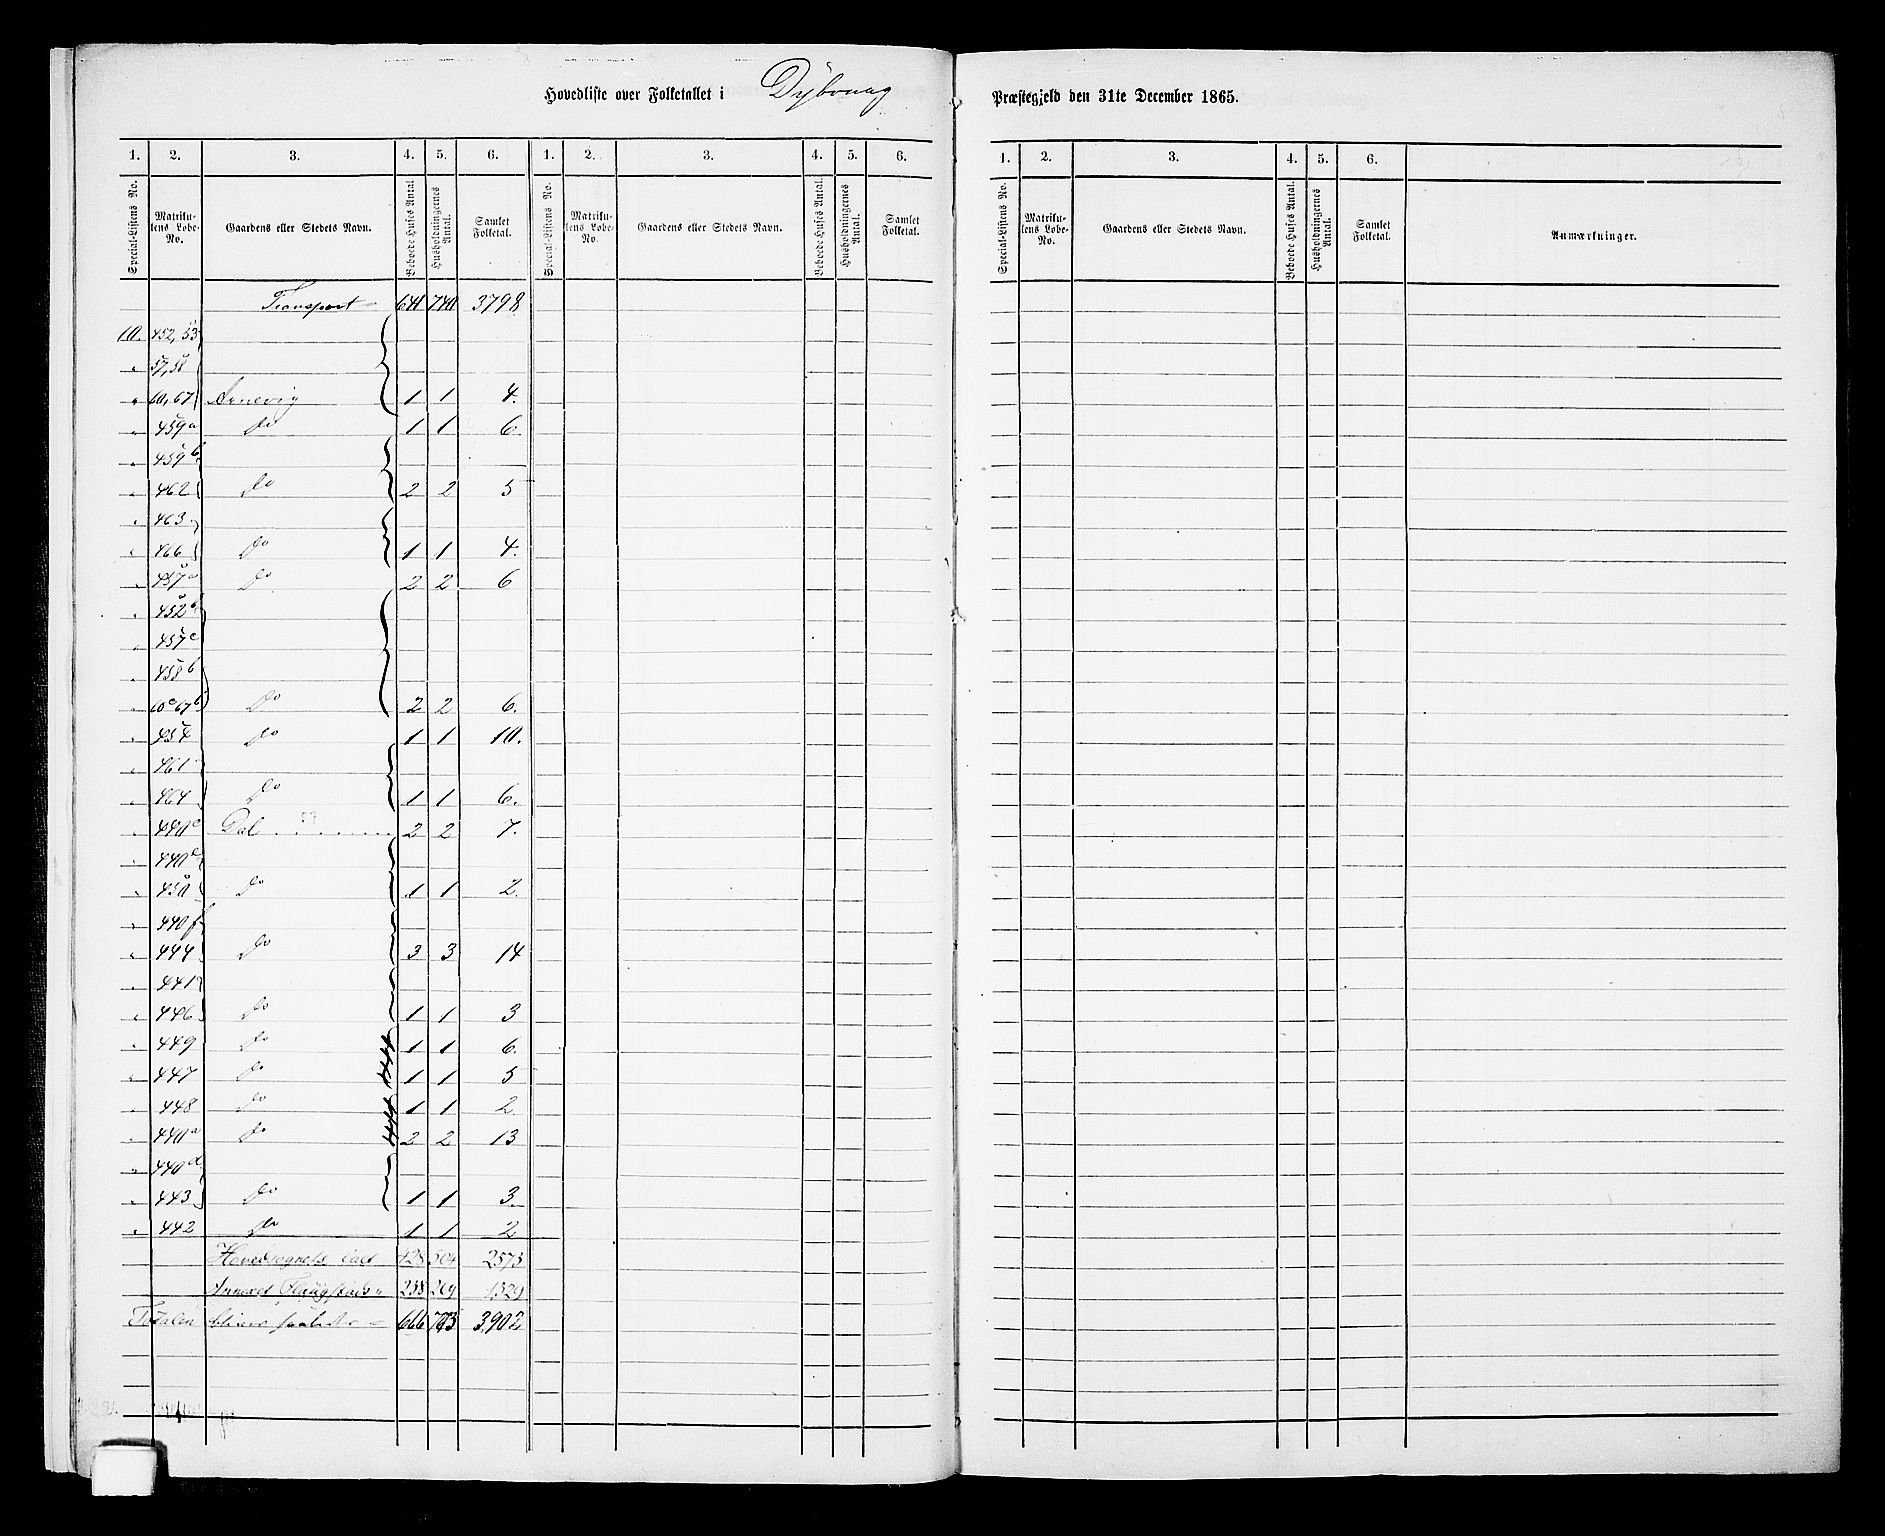 Hovedliste over Folketallet i Dybvaag Præstegjeld den 31te December 1865.
1. 2. 3. 4. 5. 6. 1. 2. 3. 4. 5. 6. 1. 2. 3. 4. 5. 6.
Special-Listens No. Matrikulens Løbe-No. Gaardens eller Stedets Navn. Beboede Huses Antal Husholdningernes Antal. Samlet Folketal. Special-Listens No. Matrikulens Løbe-No. Gaardens eller Stedets Navn. Beboede Huses Antal. Husholdningernes Antal. Samlet Folketal. Special-Listens No. Matrikulens Løbe-No. Gaardens eller Stedets Navn. Beboede Huses Antal. Husholdningernes Antal. Samlet Folketal. Anmærkninger.
Transport 641 740 3798
10. 452, 53
" 57, 58
" 60, 67 Arnevig 1 1 4.
" 459a Do 1 1 6
" 459b
" 462 Do 2 2 5
" 463
" 466 Do 1 1 4.
" 457a Do 2 2 6
" 452
" 457c
" 458b
" 60c 67b Do 2 2 6.
" 454 Do 1 1 10.
" 461
" 464 Do 1 1 6.
" 440c Dal 2 2 7.
" 440e
" 450 Do 1 1 2.
" 440f
" 444 Do 3 3 14
" 441
" 446 Do 1 1 3
" 449 Do 1 1 6.
" 447 Do 1 1 5
" 448 Do 1 1 2
" 440a Do 2 2 13
" 440d
" 443 Do 1 1 3.
" 442 Do 1 1 2
Hovedsognets Talt 428 504 2573
Annexet Flaugstads " 238 269 1329
Totalen bliver 666 773 3902